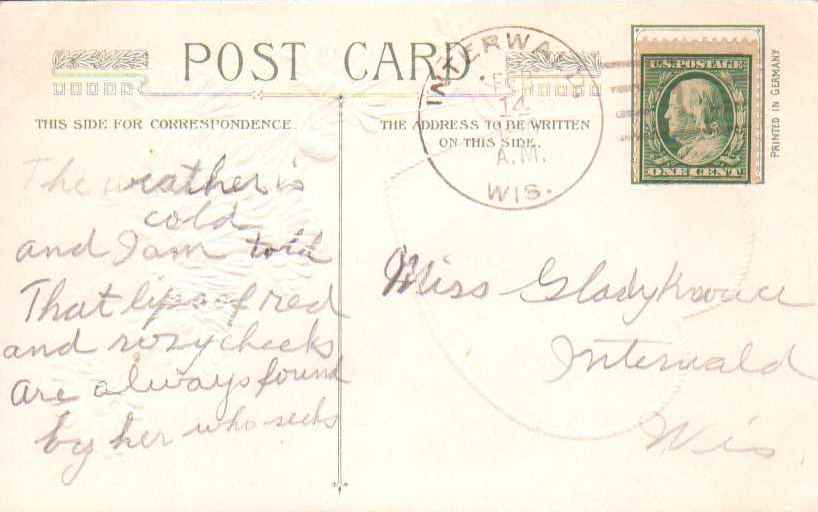 POST CARD.
THIS SIDE FOR CORRESPONDENCE.
THE ADDRESS TO BE WRITTEN
ON THIS SIDE.
INTERWALD
14
A.M.
WIS.
U.S. POSTAGE
ONE CENT
PRINTED IN GERMANY
The weather is
cold
and I am told
That lips of red
and rosy cheeks
are always found
by her who seeks
Miss Glady
Interwald
Wis.